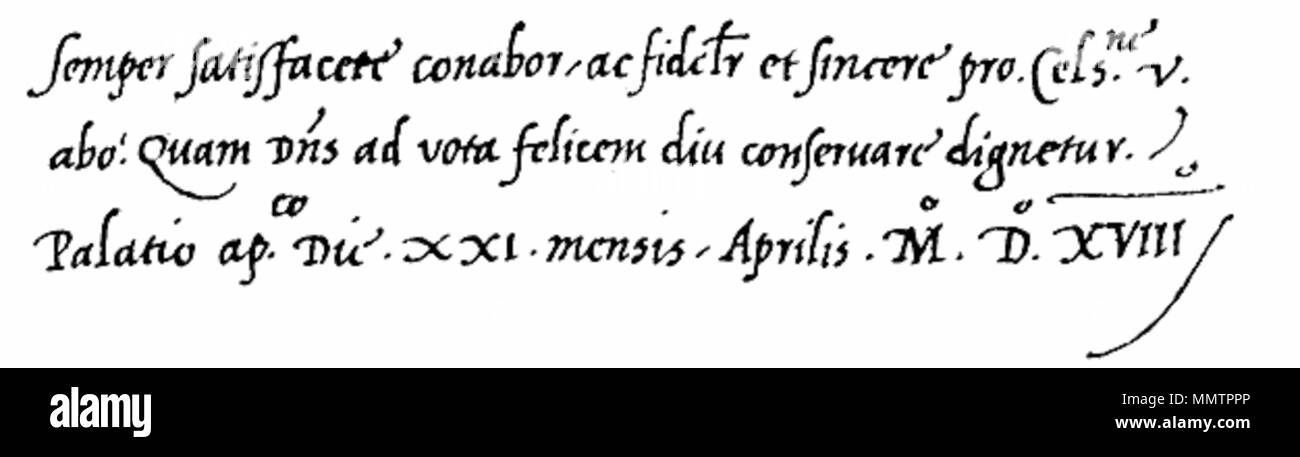 semper satisfacere conabor, ac fidelr̄ et sincere pro. Cels.ne v.
abo: Quam Dn̄s ad vota felicem diu conseruare dignetur.
Palatio ap.co Die. XXI. mensis, Aprilis. M.o D.o XVIII
alamy
Image ID: MMTPPP
www.alamy.com